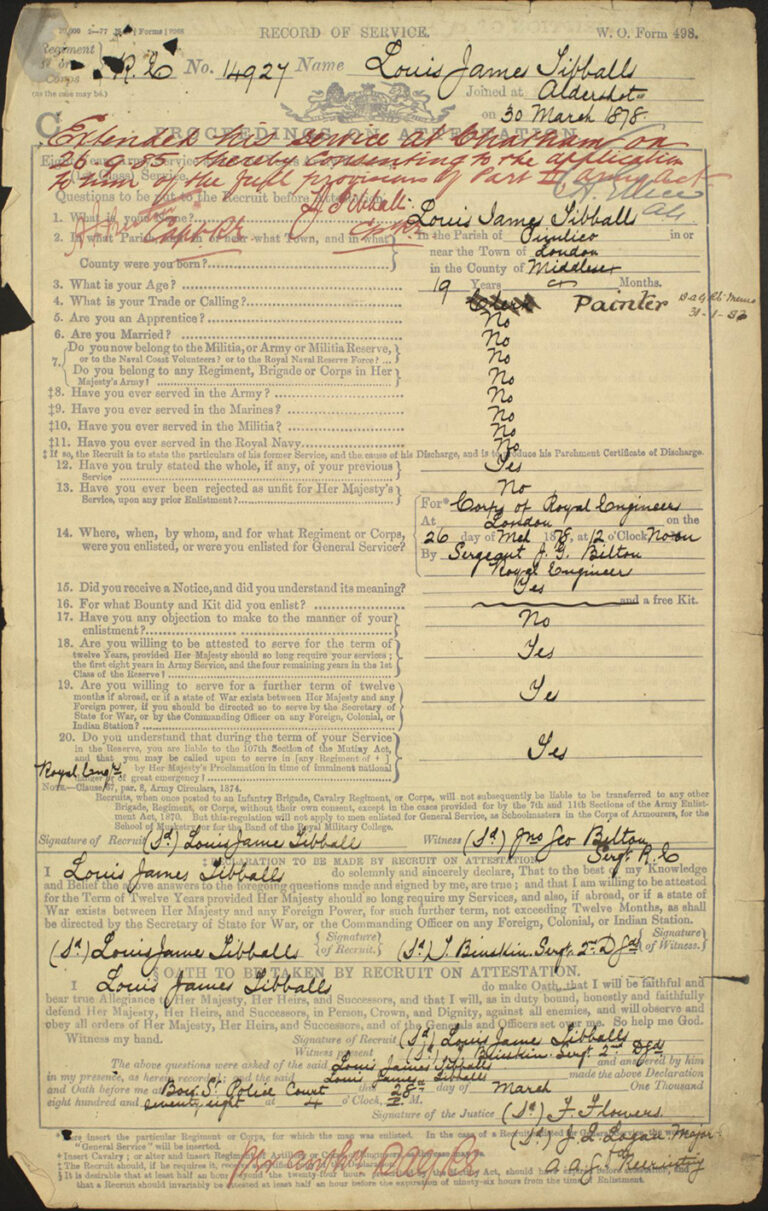 RECORD OF SERVICE.
W. O. Form 498.
Regiment
or
Corps
(as the case may be.)
R.E No. 14927 Name Louis James Tibballs
Joined at Aldershot
on 30 March 1878.
PROCEEDINGS ON ATTESTATION
Extended his service at Chatham on
26.9.83 thereby consenting to the application
to him of the full provisions of Part II Army Act
L Tibballs
Capt RE
Questions to be put to the Recruit before
1. What is your Name? Louis James Tibballs
2. In what Parish, in or near what Town, and in what County were you born? In the Parish of Pimlico in or
near the Town of London
in the County of Middlesex
3. What is your Age? 19 Years Months.
4. What is your Trade or Calling? Clerk Painter
31-1-83
5. Are you an Apprentice? No
6. Are you Married? No
7. Do you now belong to the Militia, or Army or Militia Reserve,
or to the Naval Coast Volunteers? or to the Royal Naval Reserve Force? No
Do you belong to any Regiment, Brigade or Corps in Her
Majesty's Army? No
‡8. Have you ever served in the Army? No
‡9. Have you ever served in the Marines? No
‡10. Have you ever served in the Militia? No
‡11. Have you ever served in the Royal Navy No
‡ If so, the Recruit is to state the particulars of his former Service, and the cause of his Discharge, and is to produce his Parchment Certificate of Discharge.
12. Have you truly stated the whole, if any, of your previous
Service Yes
13. Have you ever been rejected as unfit for Her Majesty's
Service, upon any prior Enlistment? No
14. Where, when, by whom, and for what Regiment or Corps,
were you enlisted, or were you enlisted for General Service?
For* Corps of Royal Engineers
At London on the
26 day of Mch 1878, at 12 o'Clock Noon
By Sergeant J. G. Bilton
Royal Engineers
15. Did you receive a Notice, and did you understand its meaning? Yes
16. For what Bounty and Kit did you enlist? and a free Kit.
17. Have you any objection to make to the manner of your
enlistment? No
18. Are you willing to be attested to serve for the term of
twelve Years, provided Her Majesty should so long require your services;
the first eight years in Army Service, and the four remaining years in the 1st
Class of the Reserve? Yes
19. Are you willing to serve for a further term of twelve
months if abroad, or if a state of War exists between Her Majesty and any
Foreign power, if you should be directed so to serve by the Secretary of
State for War, or by the Commanding Officer on any Foreign, Colonial, or
Indian Station? Yes
20. Do you understand that during the term of your Service
in the Reserve, you are liable to the 107th Section of the Mutiny Act,
and that you may be called upon to serve in [any Regiment of † ]
Royal Engrs by Her Majesty's Proclamation in time of imminent national
danger or of great emergency? Yes
NOTE.—Clause 67, par. 8, Army Circulars, 1874.
Recruits, when once posted to an Infantry Brigade, Cavalry Regiment, or Corps, will not subsequently be liable to be transferred to any other
Brigade, Regiment, or Corps, without their own consent, except in the cases provided for by the 7th and 11th Sections of the Army Enlist-
ment Act, 1870. But this regulation will not apply to men enlisted for General Service, as Schoolmasters in the Corps of Armourers, for the
School of Musketry or for the Band of the Royal Military College.
Signature of Recruit (Sd) Louis Jame Tibballs Witness (Sd) Jno Geo Bilton
Sergt. R.E
‡ DECLARATION TO BE MADE BY RECRUIT ON ATTESTATION
I Louis James Tibballs do solemnly and sincerely declare, That to the best of my Knowledge
and Belief the above answers to the foregoing questions made and signed by me, are true; and that I am willing to be attested
for the Term of Twelve Years provided Her Majesty should so long require my Services, and also, if abroad, or if a state of
War exists between Her Majesty and any Foreign Power, for such further term, not exceeding Twelve Months, as shall
be directed by the Secretary of State for War, or the Commanding Officer on any Foreign, Colonial, or Indian Station.
(Sd) Louis Jame Tibballs Signature of Recruit. (Sd) T. Binskin Sergt. 2nd Dgds Signature of Witness.
§ OATH TO BE TAKEN BY RECRUIT ON ATTESTATION.
I Louis James Tibballs do make Oath, that I will be faithful and
bear true Allegiance to Her Majesty, Her Heirs, and Successors, and that I will, as in duty bound, honestly and faithfully
defend Her Majesty, Her Heirs, and Successors, in Person, Crown, and Dignity, against all enemies, and will observe and
obey all orders of Her Majesty, Her Heirs, and Successors, and of the Generals and Officers set over me. So help me God.
Witness my hand. Signature of Recruit (Sd) Louis Jame Tibballs
Witness present (Sd) Binskin Sergt 2nd Dgds
The above questions were asked of the said Louis James Tibballs and answered by him
in my presence, as herein recorded; and the said Louis James Tibballs made the above Declaration
and Oath before me at Bow St. Police Court 28th day of March One Thousand
eight hundred and seventy eight at 4 o'Clock, P. M.
Signature of the Justice (Sd) F. Flowers
(Sd) J. L. Logan Major
Recruiting
* Here insert the particular Regiment or Corps, for which the man was enlisted.
"General Service" will be inserted.
† Insert Cavalry; or alter and insert Regiment
‡ The Recruit should, if he requires it,
§ It is desirable that at least half an hour beyond the twenty-four hours
that a Recruit should invariably be attested at least half an hour before the expiration of ninety-six hours from the time of Enlistment.